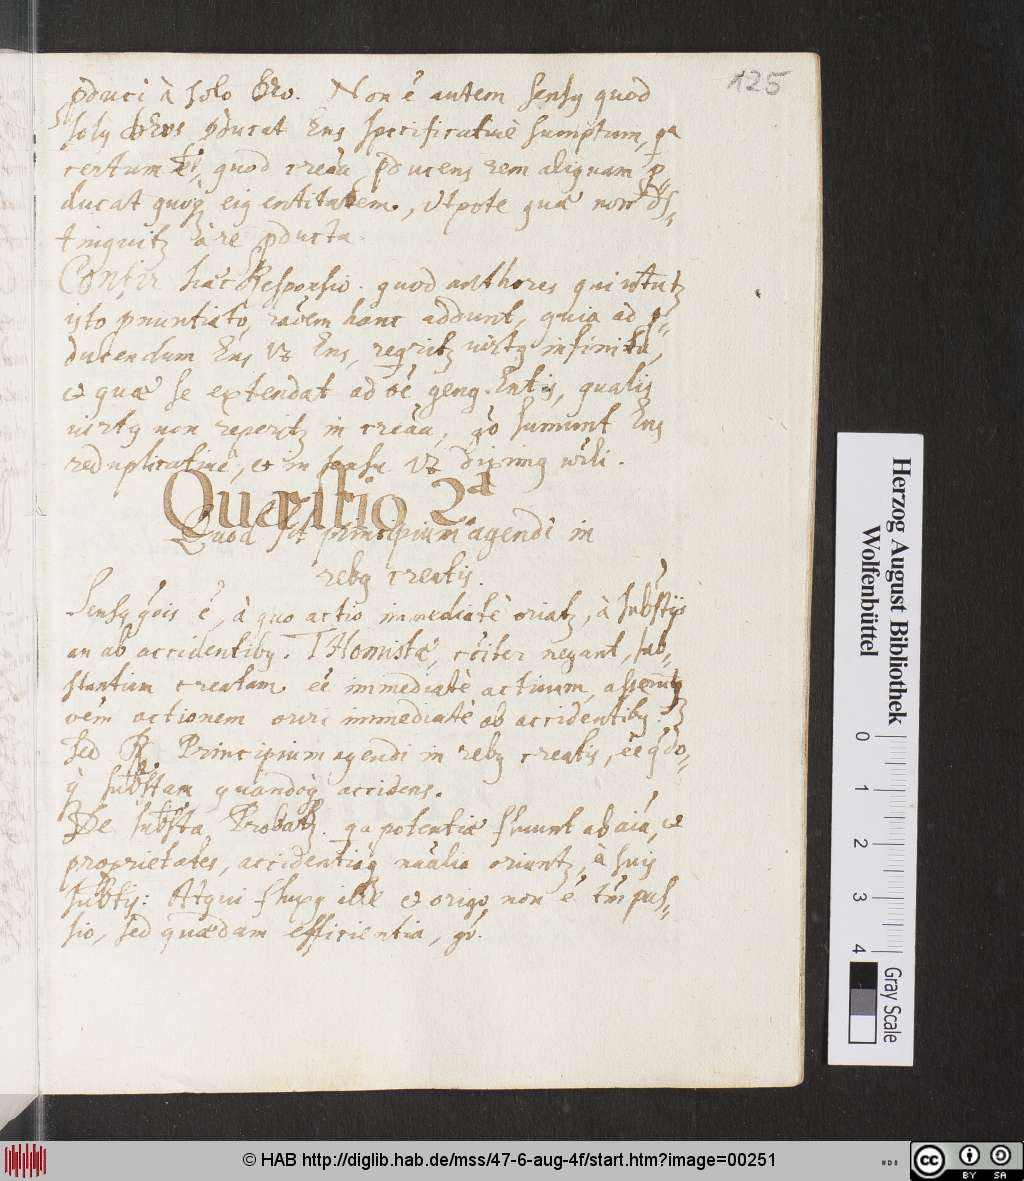 125
pduci à solo Deo. Non ē autem sensy quod
soly Deus pducat Ens specificativè sumptum, qa
certum ē, quod creāa pducens rem aliquam p=
ducat quoqz eig entitatem, Utpote quæ non dis=
tinguitz à re pducta
Confir hæc Responsio. quod authores qui utūtz
isto pnuntiato, rāōem hanc addunt, quia ad p=
ducendum Ens Vz Ens, reqritz virty infinita,
et quæ se extendat ad oē geng Entis, qualis
virty non reperitz in creāa, go sumunt Ens
reduplicativè, et in sensu Vz diximg
Quæstio 2a
Quod sit principium agendi in
reby creatis.
Sensy qois ē, à quo actio immediatè oriatz, à subst̄ijs
an ab accidentiby. THomistæ, cōiter negant, sub=
stantiam creatam eē immediatè activam, asserūtqz
oēm actionem oriri immediatè ab accidentiby.
Sed R. Principium agendi in reby creatis, eē qdo=
q subst̄am quandoqz accidens.
De subst̄a Probatz. qa potentiæ fluunt ab aīa, et
proprietates, accidentiaqz nāalia oriuntz à suis
subst̄ijs: Atqui fluxg ille et origo non ē tm̄ pas=
sio, sed quædam efficientia, go.
Herzog August Bibliothek
Wolfenbüttel
0 1 2 3 4
Gray Scale
© HAB http://diglib.hab.de/mss/47-6-aug-4f/start.htm?image=00251
HAB
cc BY SA